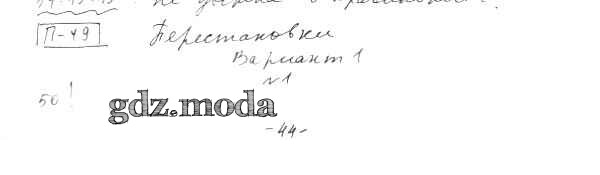 П-49 Перестановки
Вариант 1
№1
50!
gdz.moda
-44-